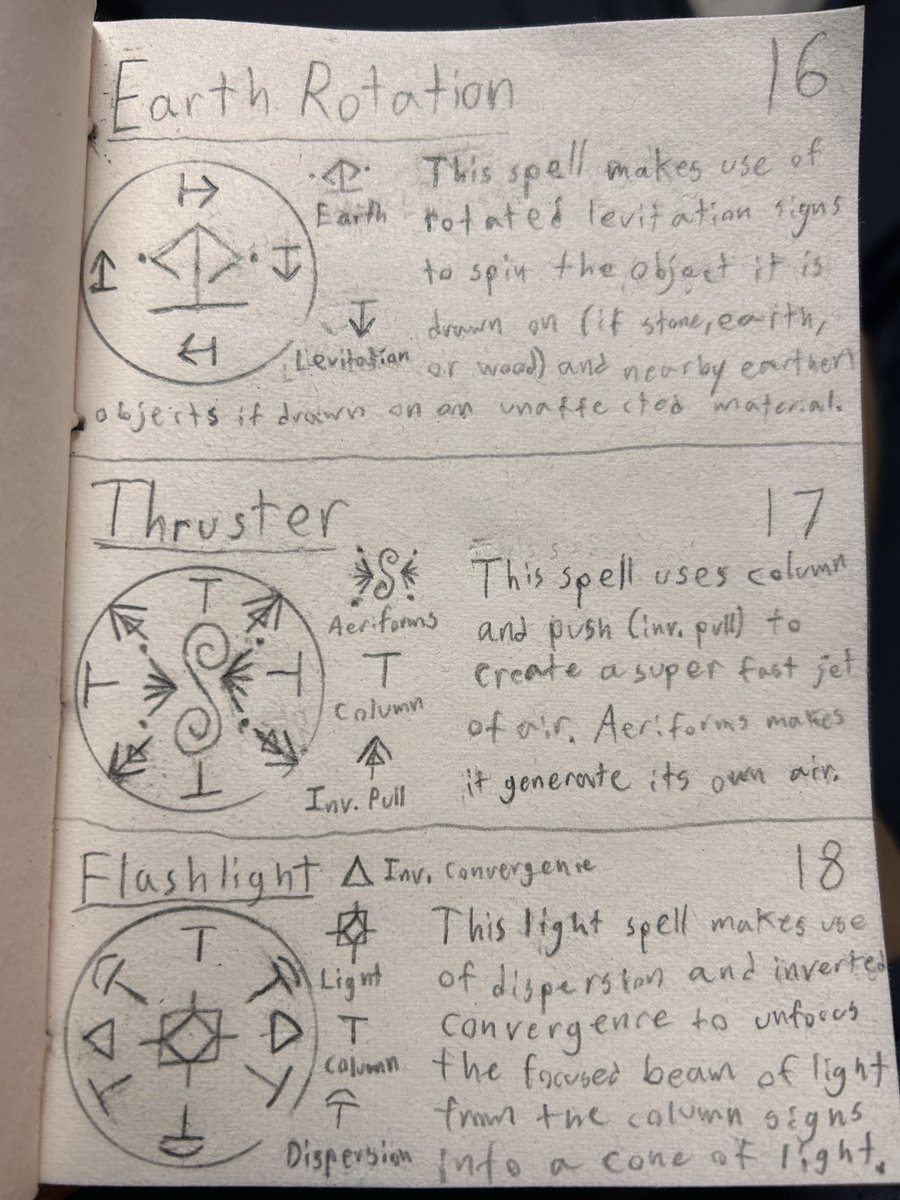 Earth Rotation 16
Earth
Levitation
This spell makes use of
rotated levitation signs
to spin the object it is
drawn on (if stone, earth,
or wood) and nearby earthen
objects if drawn on an unaffected material.
Thruster 17
Aeriforms
Column
Inv. Pull
This spell uses column
and push (inv. pull) to
create a super fast jet
of air. Aeriforms makes
it generate its own air.
Flashlight Inv. Convergence 18
Light
Column
Dispersion
This light spell makes use
of dispersion and inverted
convergence to unfocus
the focused beam of light
from the column signs
into a cone of light.